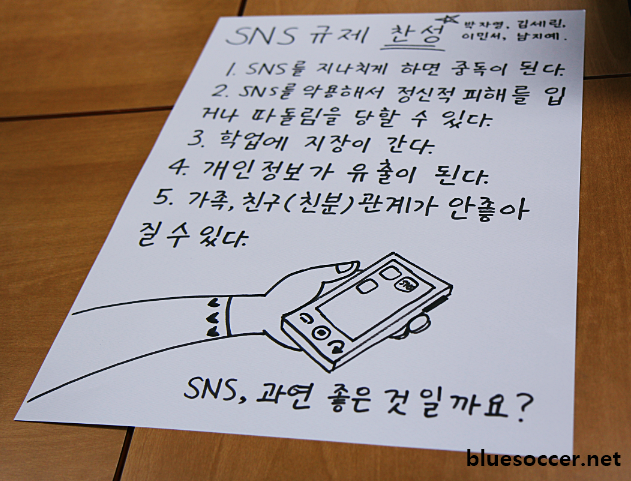 SNS 규제 찬성 ☆ 박자영, 김세린,
이민서, 남지예.
1. SNS를 지나치게 하면 중독이 된다.
2. SNS를 악용해서 정신적 피해를 입
거나 따돌림을 당할 수 있다.
3. 학업에 지장이 간다.
4. 개인정보가 유출이 된다.
5. 가족, 친구(친분)관계가 안좋아
질 수 있다.
SNS, 과연 좋은 것 일까요?
bluesoccer.net